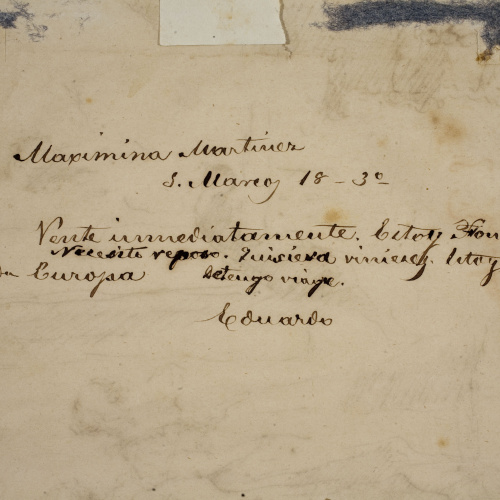 Maximina Martinez
S. Marcos 18 - 3º
Vente inmediatamente. Estoy
Necesito reposo. Quisiera vinieses. Estoy
Europa Detengo viaje.
Eduardo